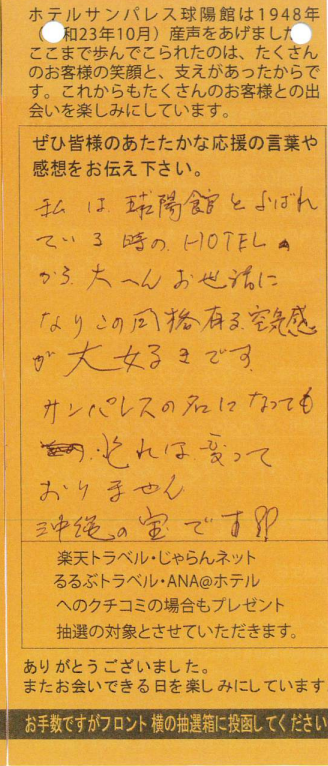 ホテルサンパレス球陽館は1948年
和23年10月）産声をあげました
ここまで歩んでこられたのは、たくさん
のお客様の笑顔と、支えがあったからで
す。これからもたくさんのお客様との出
会いを楽しみにしています。
ぜひ皆様のあたたかな応援の言葉や
感想をお伝え下さい。
私は球陽館とよばれ
ている時の.HOTEL
から大へんお世話に
なりこの風格有る.空気感
が大好きです
サンパレスの名になっても
それは変って
おりません
沖縄の宝です
楽天トラベル・じゃらんネット
るるぶトラベル・ANA@ホテル
へのクチコミの場合もプレゼント
抽選の対象とさせていただきます。
ありがとうございました。
またお会いできる日を楽しみにしています
お手数ですがフロント横の抽選箱に投函してください